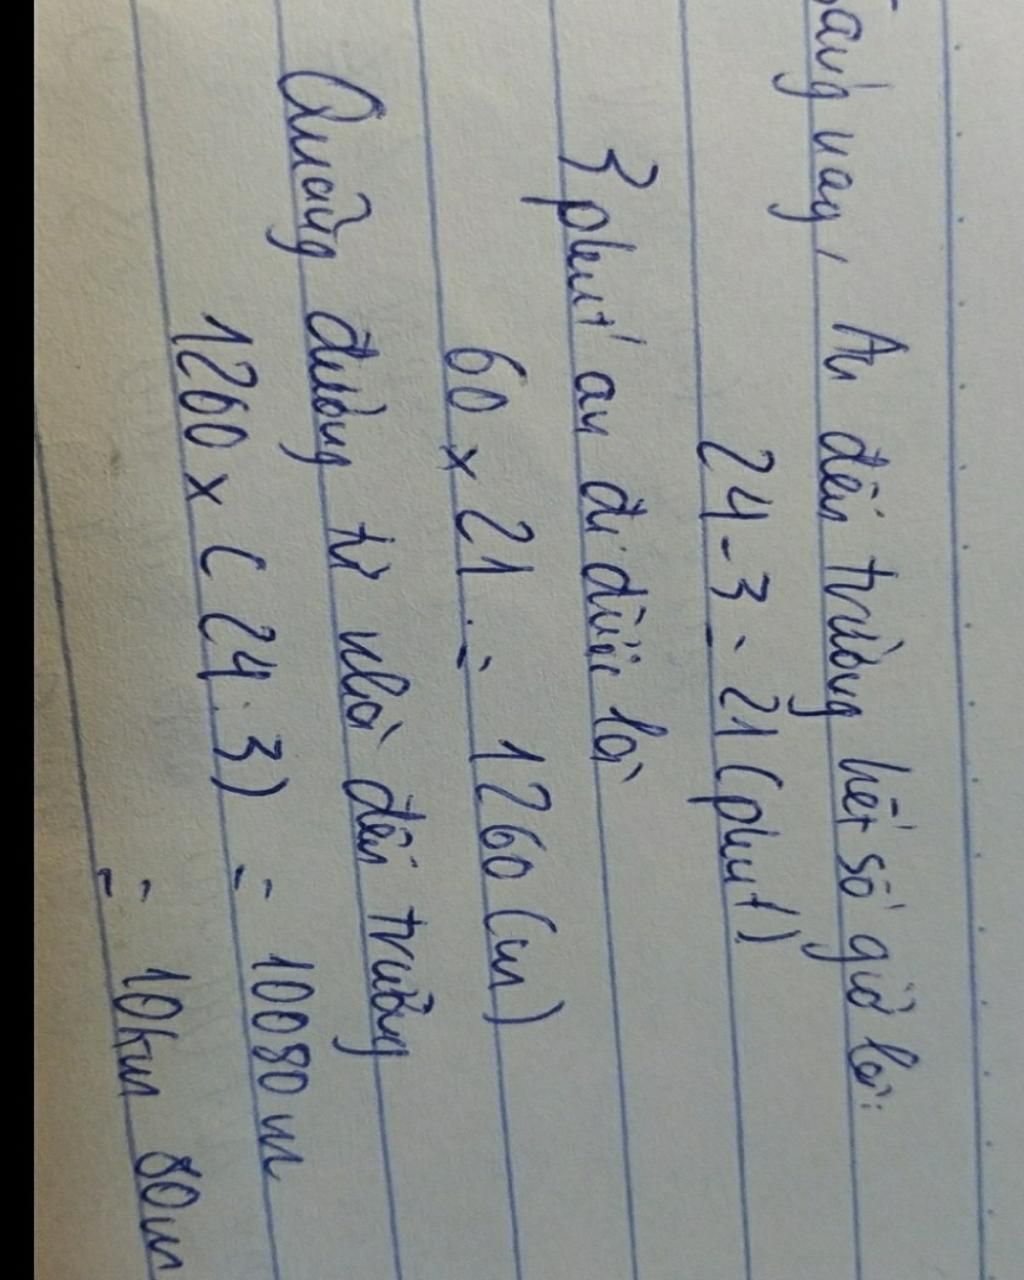 sáng nay, An đến trường hết số giờ là:
24 - 3 = 21 (phút)
3 phút an đi được là
60 x 21 = 1260 (m)
Quãng đường từ nhà đến trường
1260 x (24 : 3) = 10080 m
= 10km 80m